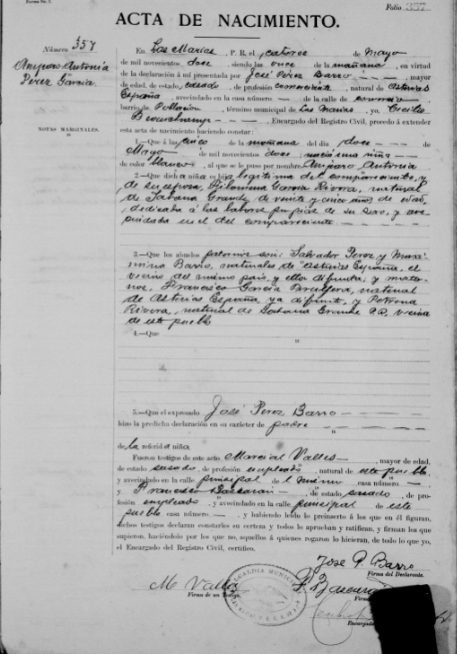 Folio 357
ACTA DE NACIMIENTO.
Número 357
Amparo Antonia
Perez Garcia
NOTAS MARGINALES.
En Las Marias, P. R. el catorce de Mayo
de mil novecientos doce, siendo las once de la mañana, en virtud
de la declaración á mí presentada por José Pérez Barro, mayor
de edad, de estado, casado, de profesión comerciante, natural de Asturias
España, avecindado en la casa número — de la calle de comercio
barrio de Población, término municipal de Las Marias, yo,
Encargado del Registro Civil, procedo á extender
esta acta de nacimiento haciendo constar:
1.—Que á las cinco de la mañana del día doce de
Mayo de mil novecientos doce, nació una niña
de color blanco, al que se le puso por nombre Amparo Antonia
2.—Que dich a niña es hija legítima del compareciente, y
de su esposa, Filomena Garcia Rivera, natural
de Sabana Grande, de veinte y cinco años de edad,
dedicada á las labores propias de su sexo, y ave-
cindada en el del compareciente
3.—Que los abuelos paternos son: Salvador Perez y
Barro, naturales de Asturias España, el
vecino del mismo pais, y ella difunta; y mater-
nos, Francisco Garcia, natural
de Asturias España, ya difunto, y Petrona
Rivera, natural de Sabana Grande P.R. vecina
de este pueblo
4.—Que
5.—Que el expresado José Perez Barro
hizo la predicha declaración en su carácter de padre
de la referid a niña
Fueron testigos de este acto Marcial Valles, mayor de edad,
de estado casado, de profesión empleado, natural de este pueblo,
y avecindado en la calle principal de l mismo casa número —
y Francisco, de estado casado, de pro-
fesión empleado, y avecindado en la calle principal de este
pueblo casa número —, y habiendo leído lo preinserto á los que en él figuran,
dichos testigos declaran constarles su certeza y todos lo aprueban y ratifican, y firman los que
supieron, haciéndolo por los que no, aquellos á quienes rogaron lo hicieran, de todo lo que yo,
el Encargado del Registro Civil, certifico.
José P. Barro
Firma del Declarante.
M Valles
Firma de un Testigo.
Firma
Encargado